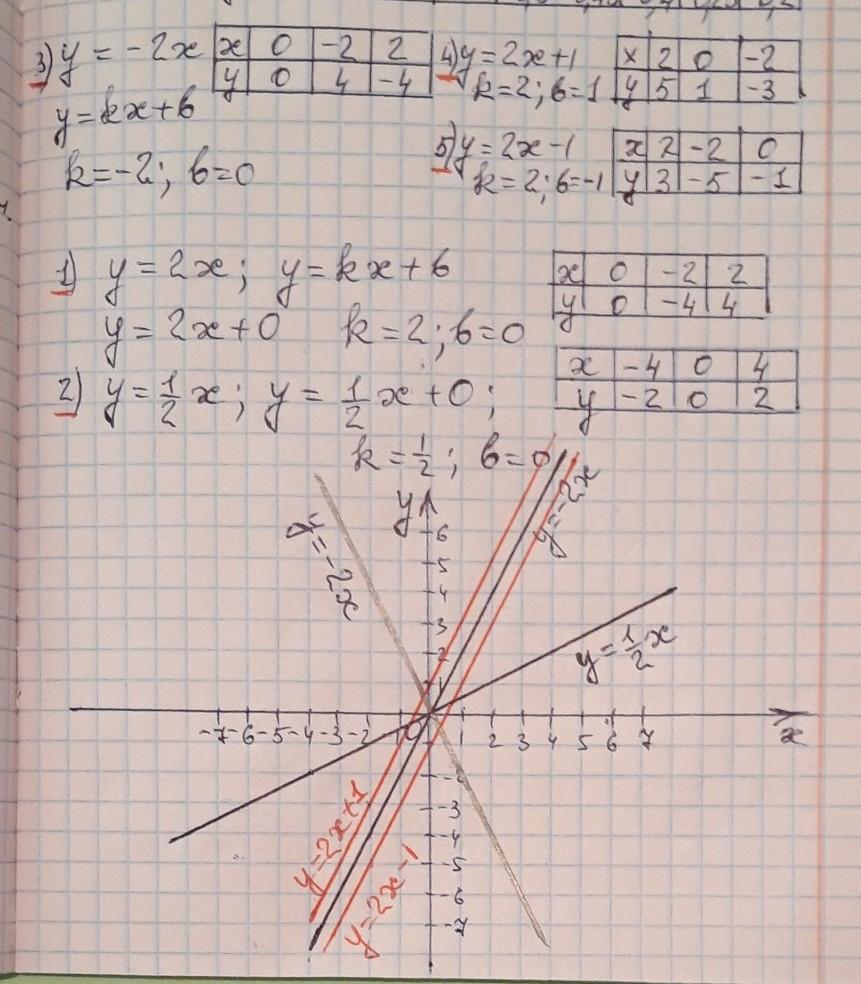 3) y = -2x
x 0 -2 2
y 0 4 -4
y = kx + b
k = -2; b = 0
4) y = 2x + 1
k = 2; b = 1
x 2 0 -2
y 5 1 -3
5) y = 2x - 1
k = 2; b = -1
x 2 -2 0
y 3 -5 -1
1) y = 2x; y = kx + b
y = 2x + 0 k = 2; b = 0
x 0 -2 2
y 0 -4 4
2) y = 1/2 x; y = 1/2 x + 0;
k = 1/2; b = 0
x -4 0 4
y -2 0 2
y
y = -2x
y = -2x
6
5
4
3
2
1
y = 1/2 x
-7 -6 -5 -4 -3 -2 -1 0 1 2 3 4 5 6 7
x
-2
-3
-4
-5
-6
-7
y = 2x + 1
y = 2x - 1